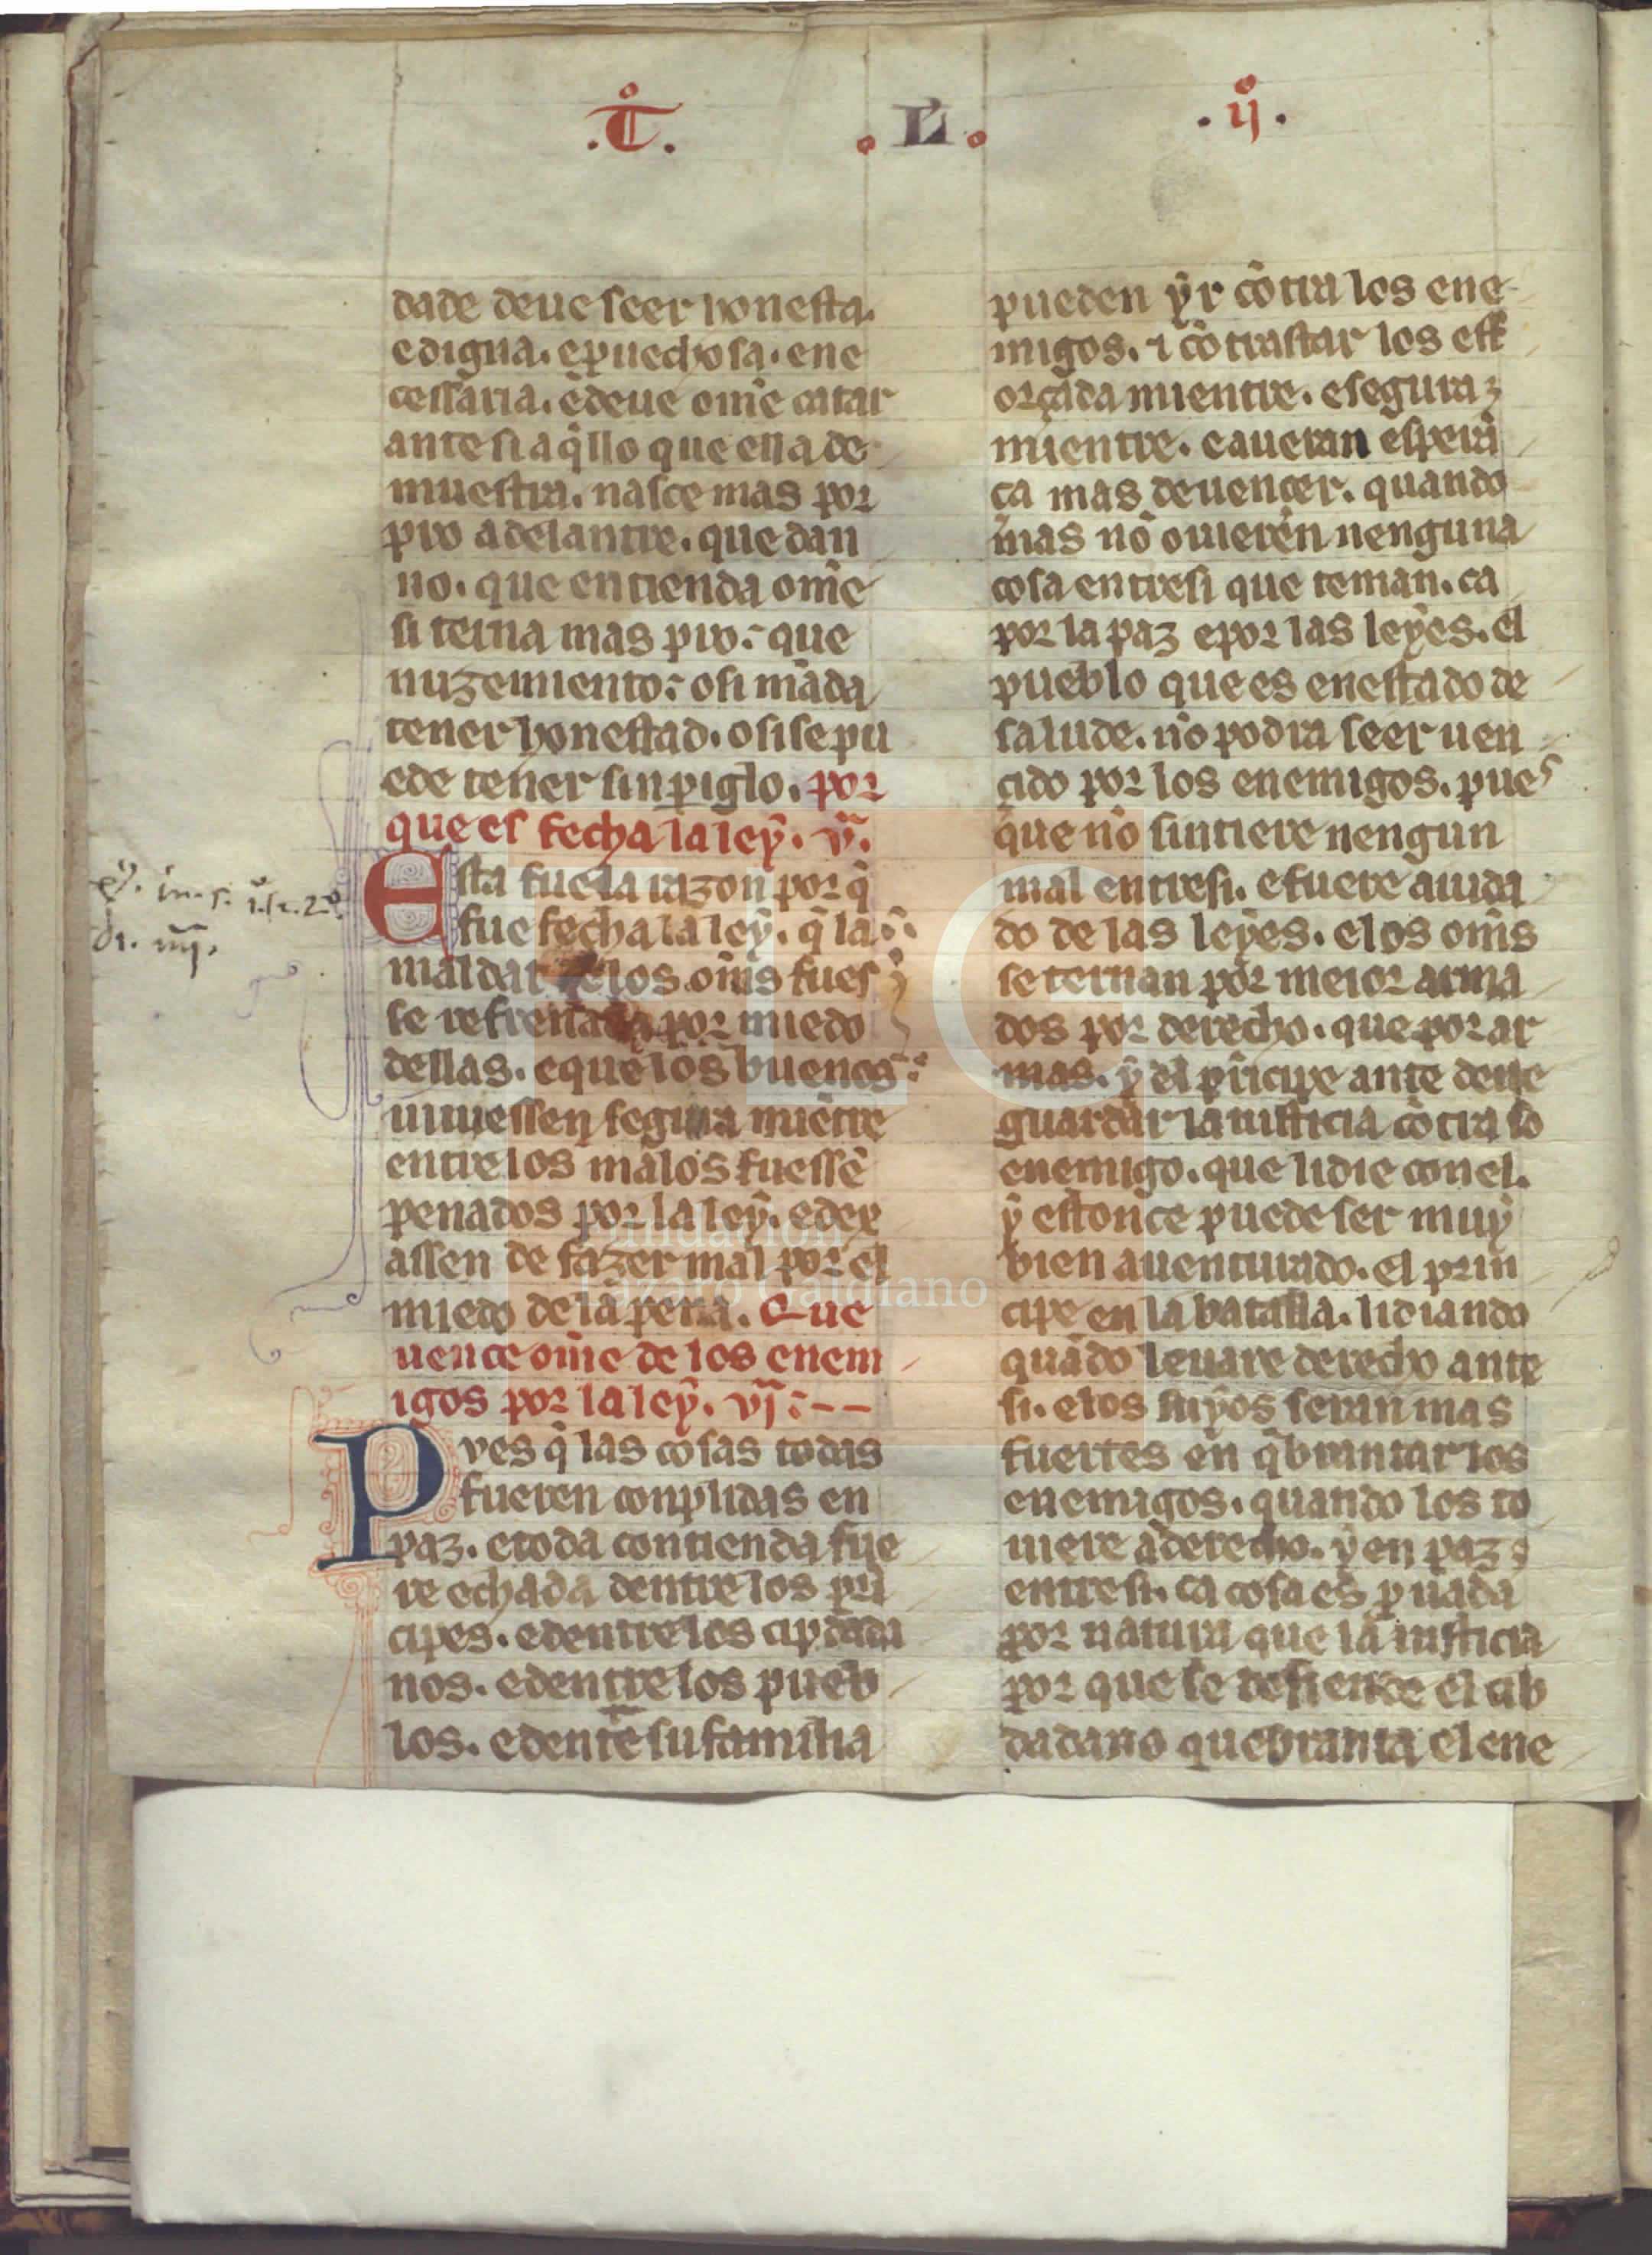 .T̊. .L'. .ıȷ̊.
dade deue seer honesta.
e digna. e puechosa. e ne
cessaria. e deue ome catar
ante si a q̃llo que ella de
muestra. nasce mas por
pro adelantre. que dan
no. que entienda ome
si terna mas pro: que
nuzemiento: o si mãda
tener honestad. o si se pu
ede tener sin piglo. por
que es fecha la leẏ. v.ª
Esta fue la razon por q̃
fue fecha la leẏ. q̃ la
maldat de los om̃s fues
se refrenada por miedo
dellas. e que los buenos
uiuiessen segura miẽtre
entre los malos fuessẽ
penados por la leẏ. e dex
assen de fazer mal por el
miedo de la pena. Que
uence ome de los enem
igos por la leẏ. vȷ:--
Pues q̃ las cosas todas
fueren conplidas en
paz. e toda contienda fue
re echada dentre los prĩ
cipes. e dentre los cipdada
nos. e dentre los pueb
los. e dentre su familia
pueden ẏr cõtra los ene
migos. ⁊ cõtrastar los eff
orçada mientre. e segura
mientre. e aueran esperã
ça mas de uencer. quando
mas nõ ouieren nenguna
cosa entre si que teman. ca
por la paz e por las leẏes. el
pueblo que es en estado de
salude. nõ podra seer uen
çido por los enemigos. pues
que nõ sintiere nengun
mal entre si. e fuere aiuda
do de las leẏes. e los om̃s
se ternan por meior arma
dos por derecho. que por ar
mas. ẏ el prĩcipe ante deue
guardar la iusticia cõtra so
enemigo. que lidie con el.
ẏ estonce puede ser muẏ
bien auenturado. el prin
cipe en la batalla. lidiando
quãdo leuare derecho ante
si. e los suẏos seran mas
fuertes en q̃brantar los
enemigos. quando los to
uiere a derecho. ẏ en paz
entre si. ca cosa es p̃uada
por natura que la iusticia
por que se defiende el cib
dadano quebranta el ene
di. iiij.
FLG
Fundación
Lázaro Galdiano